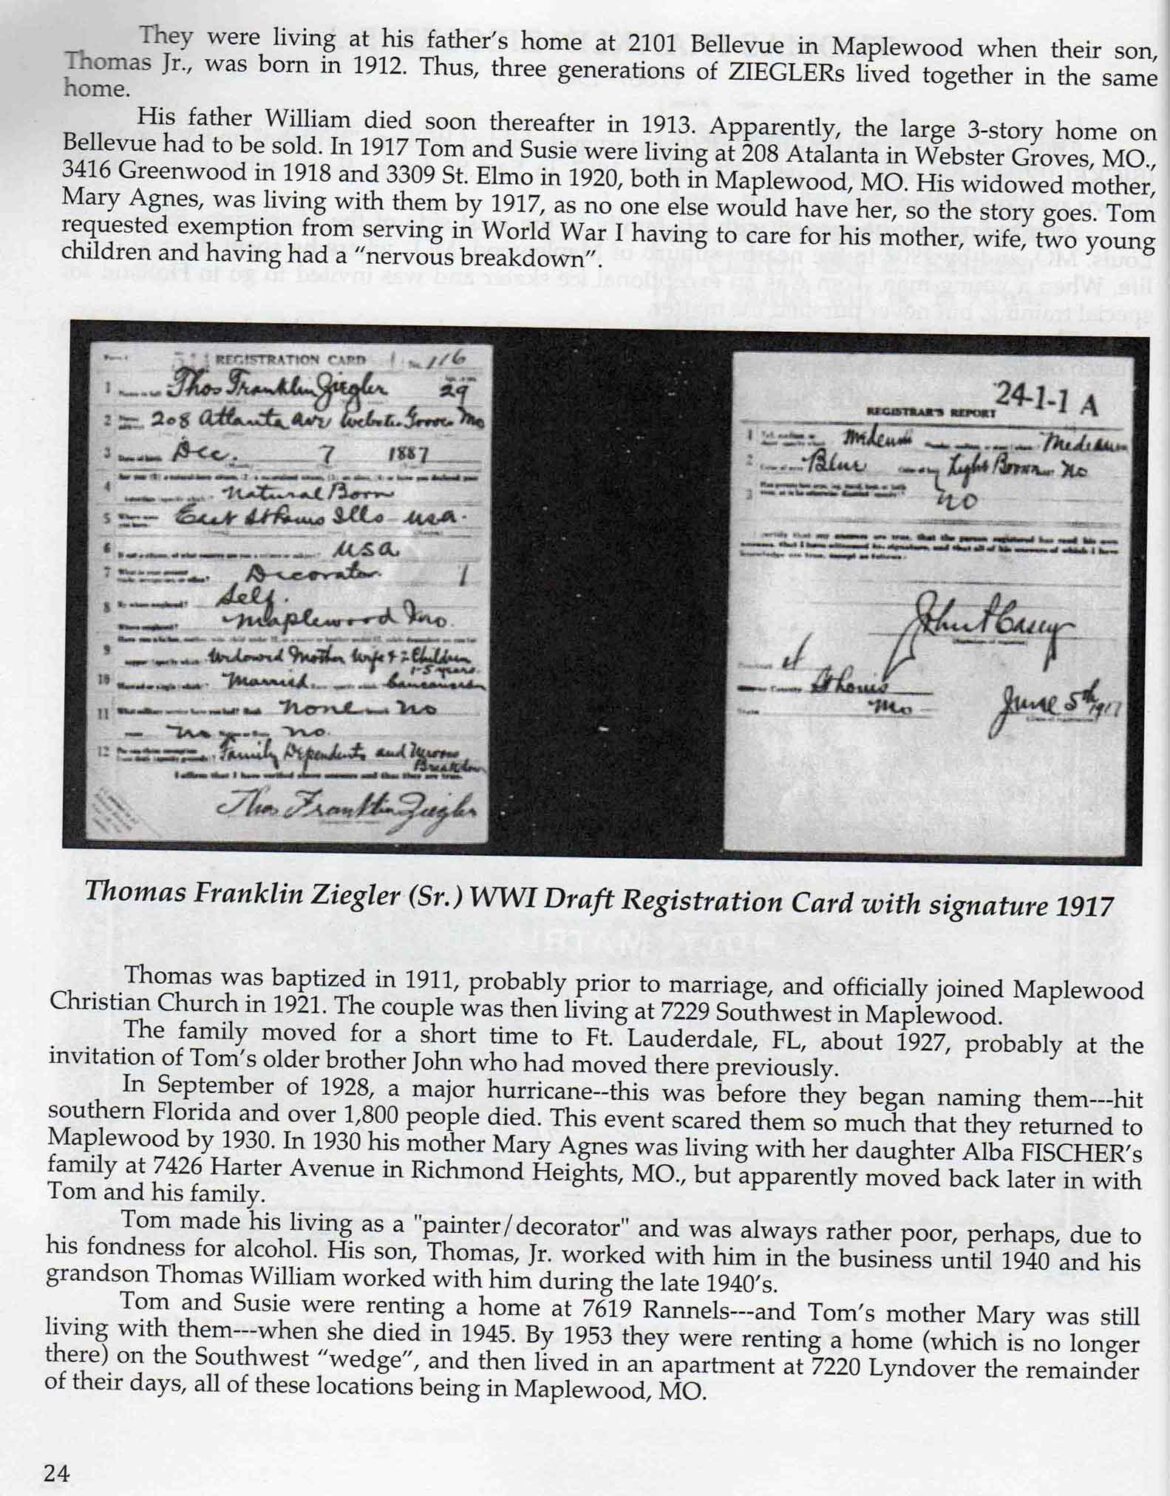 They were living at his father's home at 2101 Bellevue in Maplewood when their son,
Thomas Jr., was born in 1912. Thus, three generations of ZIEGLERs lived together in the same
home.
His father William died soon thereafter in 1913. Apparently, the large 3-story home on
Bellevue had to be sold. In 1917 Tom and Susie were living at 208 Atalanta in Webster Groves, MO.,
3416 Greenwood in 1918 and 3309 St. Elmo in 1920, both in Maplewood, MO. His widowed mother,
Mary Agnes, was living with them by 1917, as no one else would have her, so the story goes. Tom
requested exemption from serving in World War I having to care for his mother, wife, two young
children and having had a "nervous breakdown".
REGISTRATION CARD No. 116
1 Thos Franklin Ziegler 29
2 208 Atlanta Ave Webster Groves Mo
3 Dec. 7 1887
4 Natural Born
5 East St Louis Ills USA.
6 USA
7 Decorator 1
8 Self.
Maplewood Mo.
9 Widowed Mother Wife & 2 Children
1-5 years
10 Married Caucasian
11 None No
No No.
12 Family Dependents and Nervous
Breakdown
I affirm that I have verified above answers and that they are true.
Thos Franklin Ziegler
24-1-1 A
REGISTRAR'S REPORT
1 Medium Medium
2 Blue Light Brown No
3 No
John A Casey
St Louis
Mo
June 5th 1917
Thomas Franklin Ziegler (Sr.) WWI Draft Registration Card with signature 1917
Thomas was baptized in 1911, probably prior to marriage, and officially joined Maplewood
Christian Church in 1921. The couple was then living at 7229 Southwest in Maplewood.
The family moved for a short time to Ft. Lauderdale, FL, about 1927, probably at the
invitation of Tom's older brother John who had moved there previously.
In September of 1928, a major hurricane--this was before they began naming them---hit
southern Florida and over 1,800 people died. This event scared them so much that they returned to
Maplewood by 1930. In 1930 his mother Mary Agnes was living with her daughter Alba FISCHER's
family at 7426 Harter Avenue in Richmond Heights, MO., but apparently moved back later in with
Tom and his family.
Tom made his living as a "painter/decorator" and was always rather poor, perhaps, due to
his fondness for alcohol. His son, Thomas, Jr. worked with him in the business until 1940 and his
grandson Thomas William worked with him during the late 1940's.
Tom and Susie were renting a home at 7619 Rannels---and Tom's mother Mary was still
living with them---when she died in 1945. By 1953 they were renting a home (which is no longer
there) on the Southwest "wedge", and then lived in an apartment at 7220 Lyndover the remainder
of their days, all of these locations being in Maplewood, MO.
24